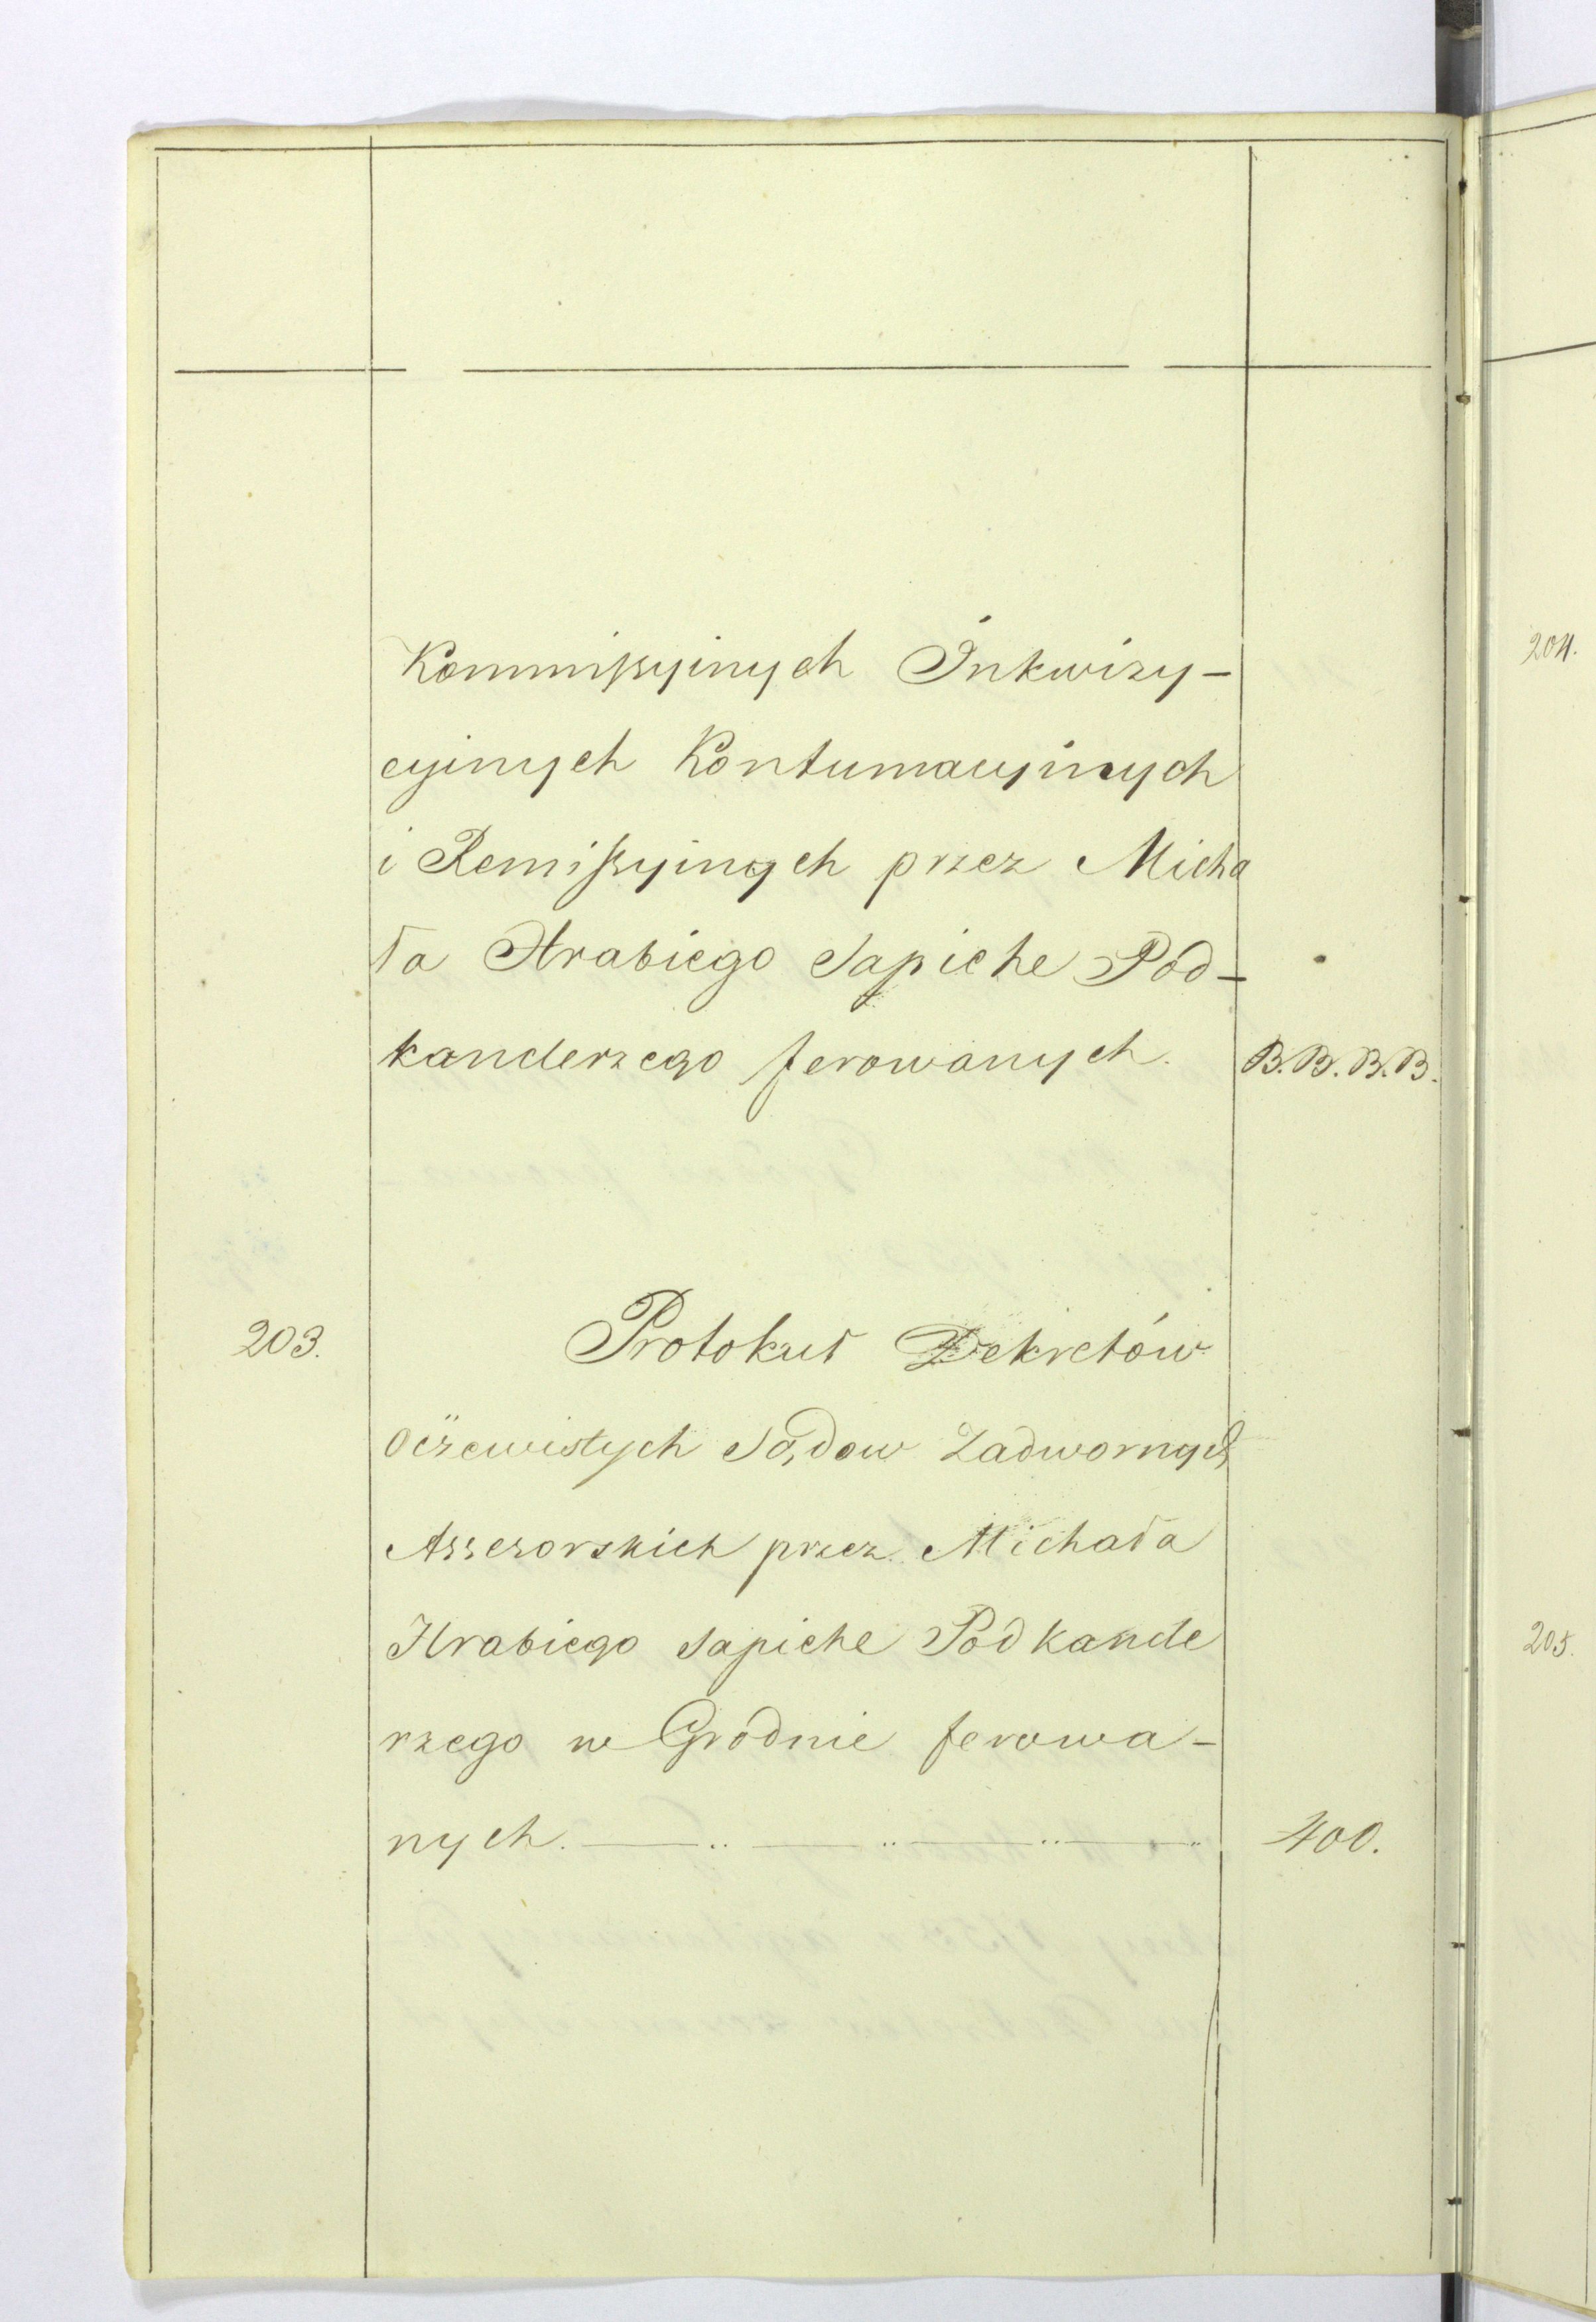 Kommissyinych Inkwizy-
cyinych Kontumacyinych
i Remissyinych przez Micha
ła Hrabiego Sapiehe Pod-
kanclerzego ferowanych. B.B.B.B.
203. Protokuł Dekretów
Oczewistych Sądow Zadwornych
Assesorskich przez Michała
Hrabiego Sapiehe Podkancle
rzego w Grodnie ferowa-
nych. 400.
204.
205.